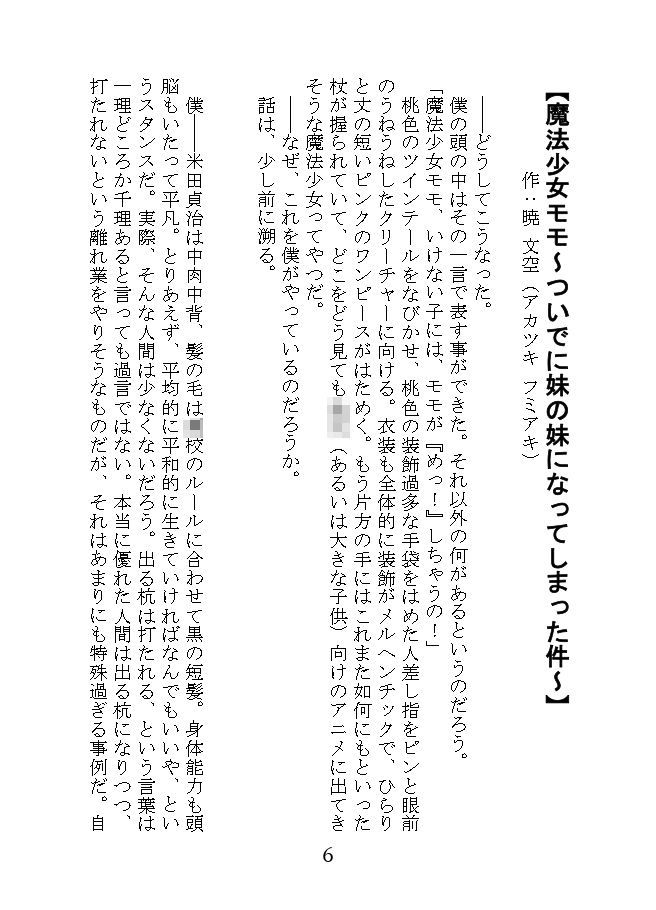 【魔法少女モモ～ついでに妹の妹になってしまった件～】
作：暁 文空（アカツキ フミアキ）
――どうしてこうなった。
僕の頭の中はその一言で表す事ができた。それ以外の何があるというのだろう。
「魔法少女モモ、いけない子には、モモが『めっ！』しちゃうの！」
桃色のツインテールをなびかせ、桃色の装飾過多な手袋をはめた人差し指をピンと眼前
のうねうねしたクリーチャーに向ける。衣装も全体的に装飾がメルヘンチックで、ひらり
と丈の短いピンクのワンピースがはためく。もう片方の手にはこれまた如何にもといった
杖が握られていて、どこをどう見ても（あるいは大きな子供）向けのアニメに出てき
そうな魔法少女ってやつだ。
――なぜ、これを僕がやっているのだろうか。
話は、少し前に溯る。
僕――米田貞治は中肉中背、髪の毛は校のルールに合わせて黒の短髪。身体能力も頭
脳もいたって平凡。とりあえず、平均的に平和的に生きていければなんでもいいや、とい
うスタンスだ。実際、そんな人間は少なくないだろう。出る杭は打たれる、という言葉は
一理どころか千理あると言っても過言ではない。本当に優れた人間は出る杭になりつつ、
打たれないという離れ業をやりそうなものだが、それはあまりにも特殊過ぎる事例だ。自
6